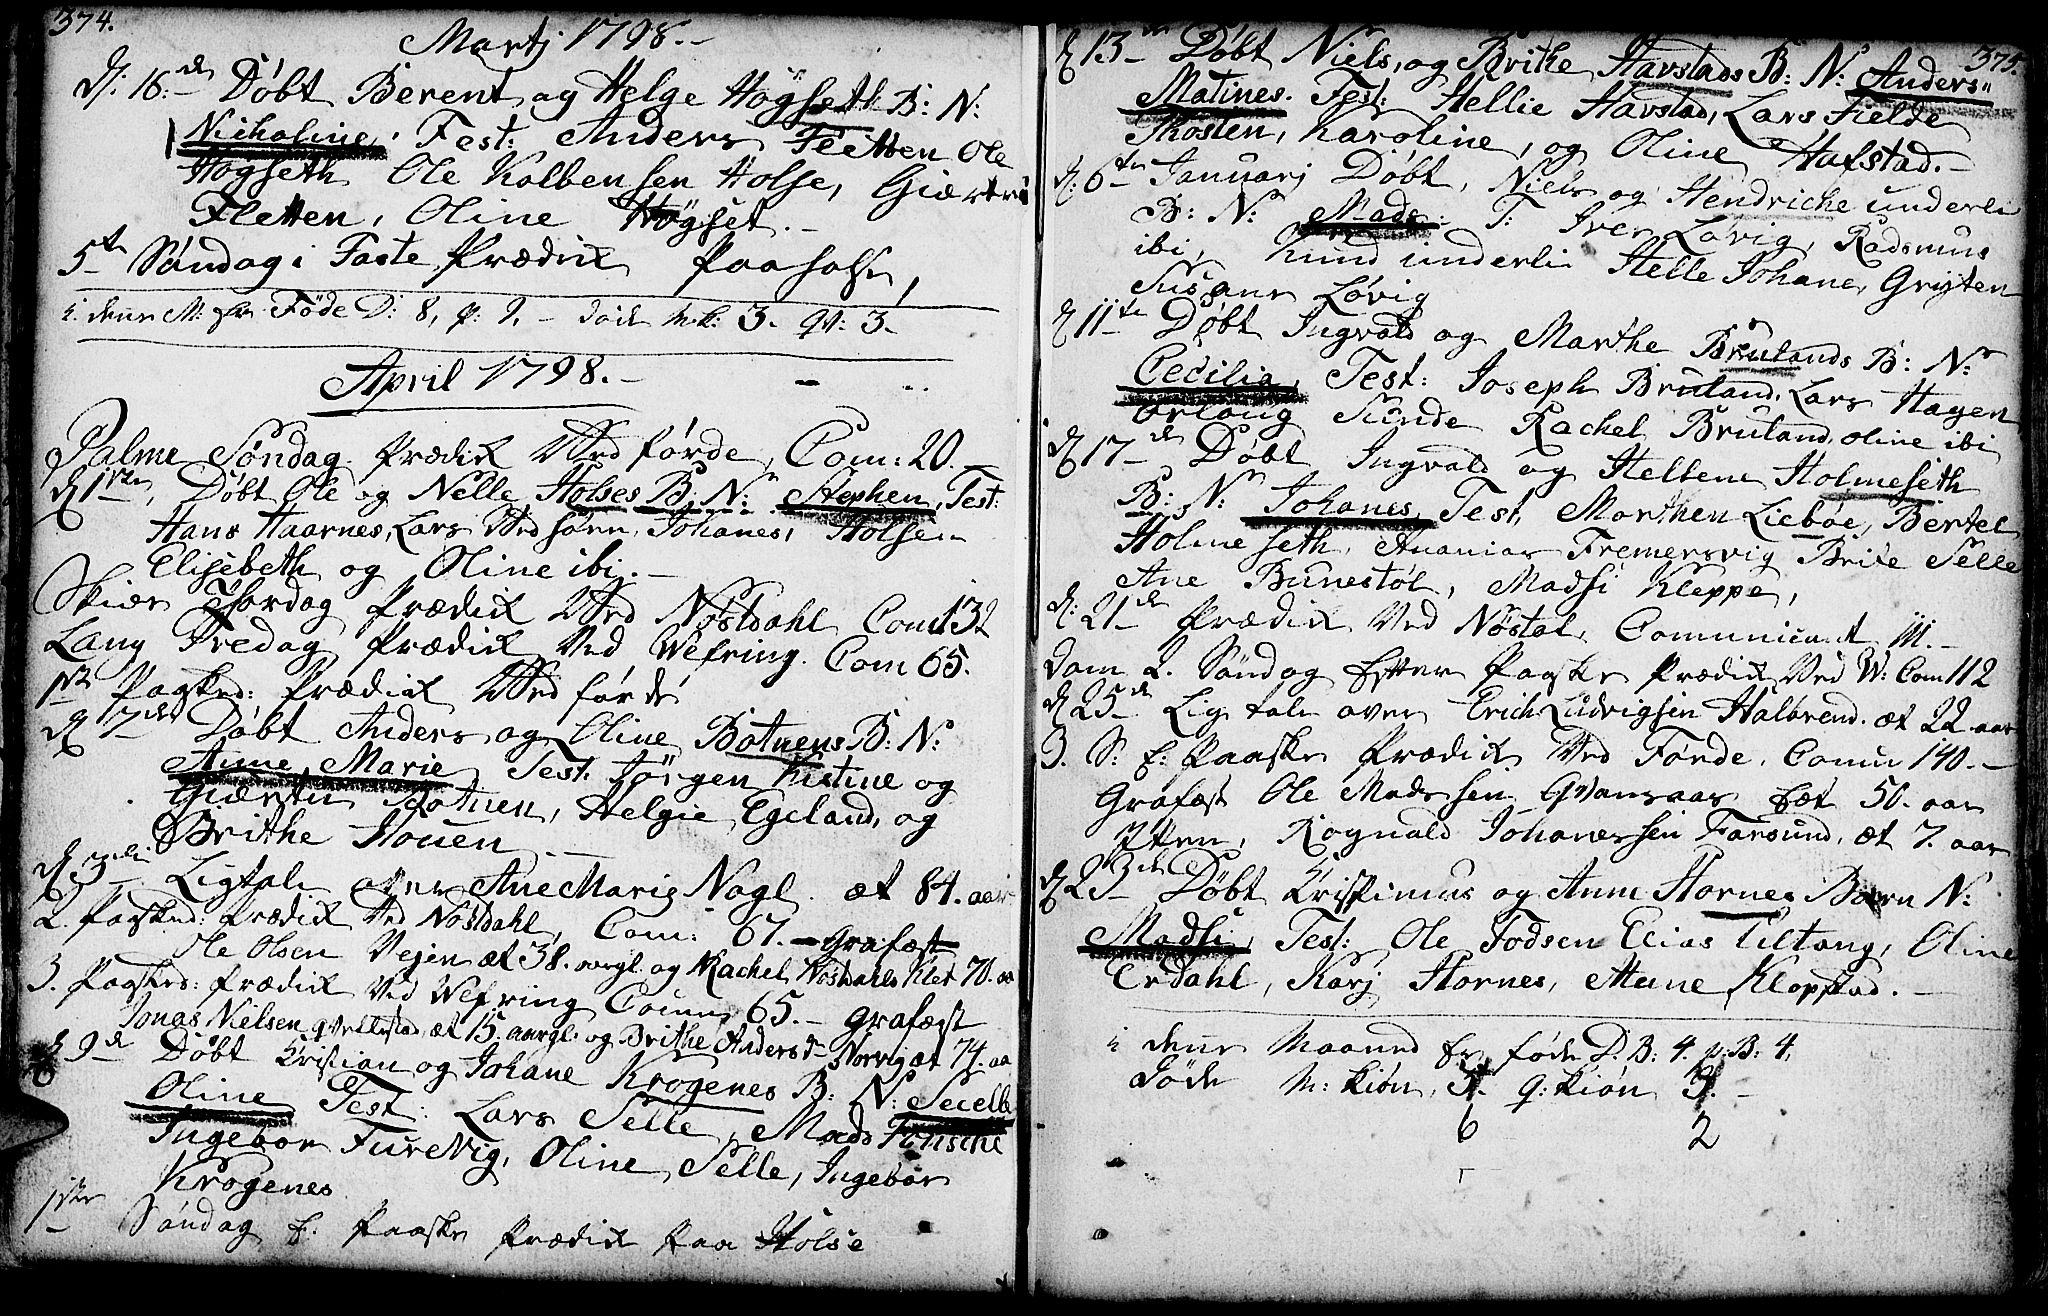 374.
Martj 1798.-
d: 16:de Döbt Berent og Helge Högseth B: N:
Nicholine. Test: Anders Fletten Ole
Högseth Ole Kolbensen Holse, Giertru
Fletten, Oline Högset.-
5te Søndag i Faste Prædik paa Holse,
i denne M: er Föde D: 8, p: 9, - döde M.k: 3. qv: 3.-
April 1798.-
Palme Søndag Prædik Ved førde, Com: 20.-
d 1ste, Döbt Ole og Nelle Holses B: N: Stephen, Test:
Hans Haarnes, Lars Johanes, Holsen
Elisebeth og Oline ibj.-
Skier Tordag Prædik Ved Nøstdahl Com 132
Lang Fredag Prædik Ved Wefring. Com 65.
1ste Paasked: Prædik Ved førde
d 7de Døbt Anders og Oline Botnens B: N:
Anne Marie Test: Jörgen Kistine og
Giertru Botnen, Helgie Egeland, og
Brithe Houen
d: 3die Ligtale over Ane Marie Nagl. æt 84. aar
2. Paasked: Prædik Ved Nøstdahl, Com: 67. - grafæst
Ole Olsen Vejen æt 38. aargl. og Rachel Nøstdahls Klet 70. aa
3. Paasked: Prædik Ved Wefring Comu 65.- grafæst
Jonas Nielsen æt 15. aargl. og Brithe Andersd- Norvig æt 74. aa
d 9de Döbt Kristian og Johane Krogenes B: N: Secelle
Oline Test: Lars Selle, Mads
Ingebor Furevig, Oline Selle, Ingebor
Krogenes
1ste Søndag E: Paaske Prædik paa Holse
375.
d 13de Döbt Niels, og Brithe Havstads B: N: Anders
Matines. Test: Hellie Havstad, Lars Fielde
Thosten, Karoline, og Oline Hafstad.-
d: 6te Januarj Döbt, Niels og Hendriche underli
B: N: Mads. T: Iver Løvig, Radsmus
ibi, Knud underli Helle Johane, Gryten
Susane Løvig
d 11te Döbt Ingvald og Marthe Brulands B: N:
Cecilia, Test: Joseph Bruland, Lars Hagen
Erlang Sunde Rachel Bruland, oline ibi
d 17de Döbt Ingvald og Hellene Holmeseth
B: N: Johanes, Test, Marthen Liebøe, Bertel
Holmeseth, Ananias Fremersvig Brite Selle
Ane Bunestøl, Madsi Kleppe,
d: 21de Prædik Ved Nøstal, Comunicant 111.-
Dom 2. Søndag Efter Paaske Prædik Ved W: Com 112
d 25de Ligtale over Erich Ludvigsen Halbrend. æt 22 aar
3. S: E: Paaske Prædik Ved Førde. Comu 140.-
Grafæst Ole Madssen æt 50. aar
Rognald Johanessen Farsund, æt 7. aar
d 23de Döbt Kristinus og Anne Hornes Barn N:
Madsi, Test: Ole Todsen Elias Tiltang, Oline
Erdahl, Karj Hornes, Anne Klopstad.-
i denne Maaned er føde D. B: 4. p: B: 4,
Döde M: kiøn, 5. q: kiøn 3.-
6 2